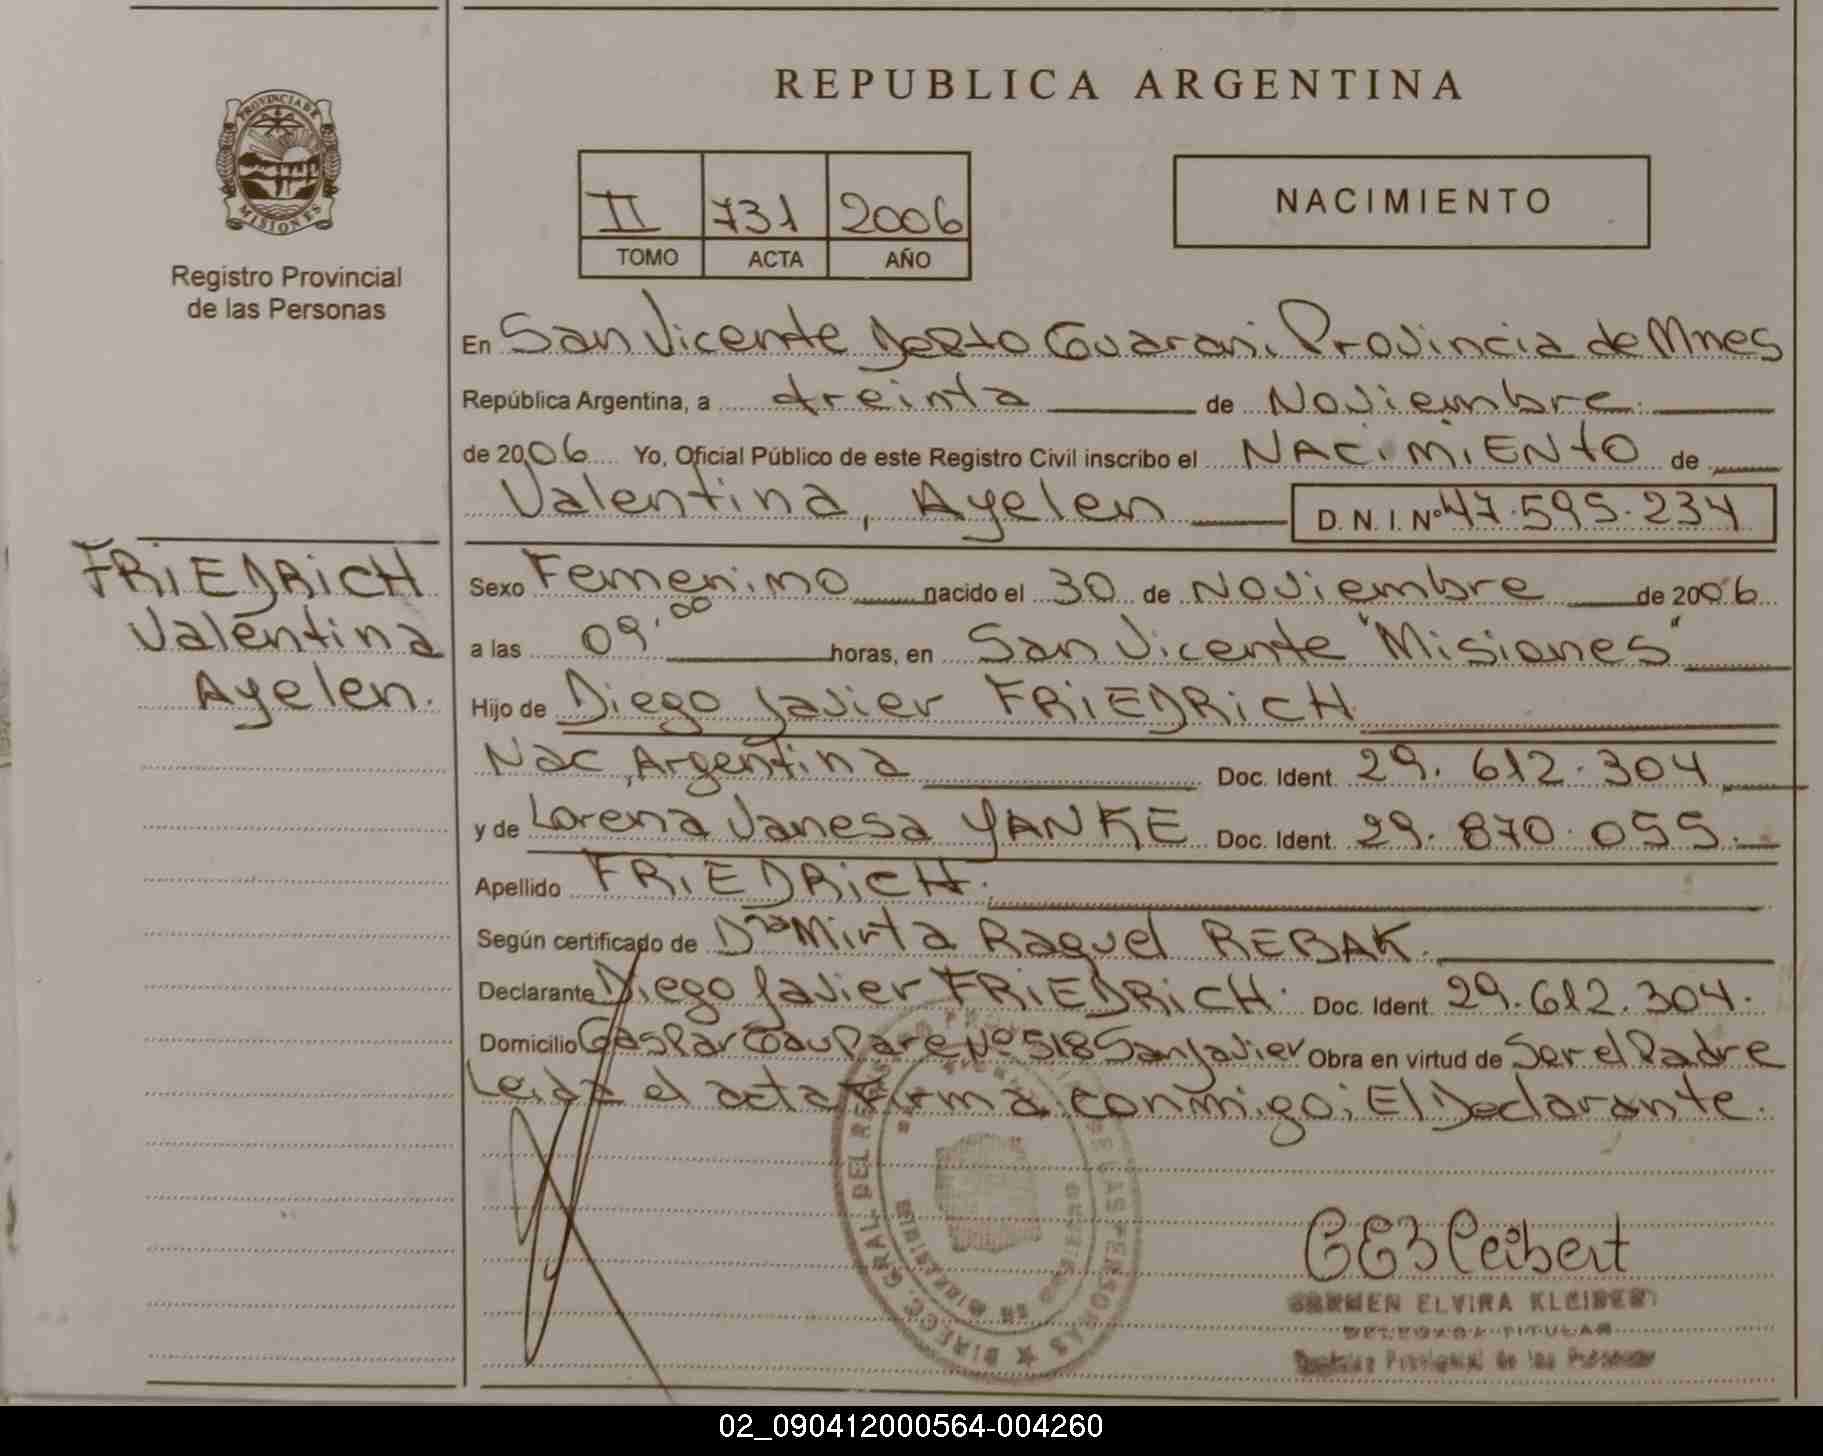 REPUBLICA ARGENTINA
PROVINCIA DE
MISIONES
Registro Provincial
de las Personas
II 731 2006
TOMO ACTA AÑO
NACIMIENTO
En San Vicente Dpto Guarani Provincia de Mnes
República Argentina, a treinta de Noviembre
de 2006 Yo, Oficial Público de este Registro Civil inscribo el NACIMIENTO de
Valentina, Ayelen D. N. I. Nº 47.595.234
FRIEDRICH
Valentina
Ayelen.
Sexo Femenino nacido el 30 de Noviembre de 2006
a las 09,00 horas, en San Vicente "Misiones"
Hijo de Diego Javier FRIEDRICH
Nac, Argentina Doc. Ident. 29.612.304
y de Lorena Vanesa YANKE Doc. Ident. 29.870.055.
Apellido FRIEDRICH.
Según certificado de Dra Mirta Raquel REBAK.
Declarante Diego Javier FRIEDRICH. Doc. Ident. 29.612.304.
Domicilio Gaspar Nº 518 San Javier Obra en virtud de Ser el Padre
Leida el acta Firma conmigo; El Declarante.
DIREC. GRAL. DEL REG. DE LAS PERSONAS
CARMEN ELVIRA KLEIBERT
DELEGADA TITULAR
Registro Provincial de las Personas
02_090412000564-004260